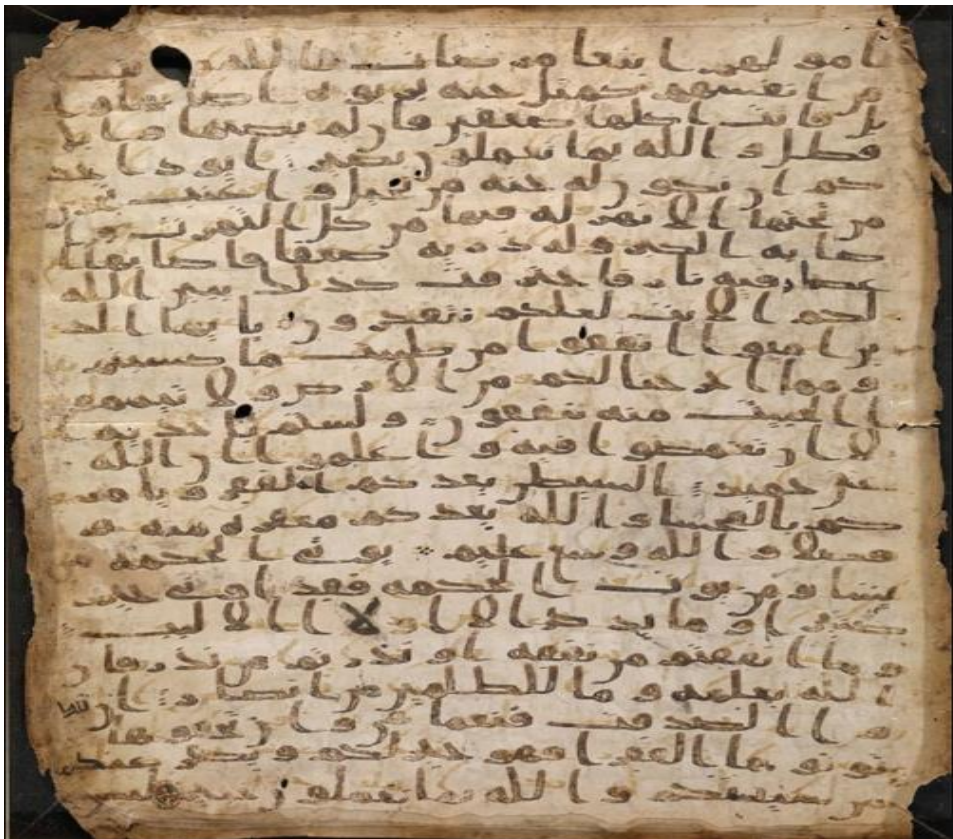 امولهم ابتغا مرضات الله وتثبيتا
من انفسهم كمثل جنه بربوه اصابها وا
بل فاتت اكلها ضعفين فان لم يصبها وابل
فطل والله بما تعملون بصير ايود احد
كم ان تكون له جنه من نخيل واعنب تجري
من تحتها الانهر له فيها من كل الثمرت و
اصابه الكبر وله ذريه ضعفا فاصابها ا
عصار فيه نار فاحترقت كذلك يبين الله
لكم الايت لعلكم تتفكرون يايها الذ
ين امنوا انفقوا من طيبت ما كسبتم
ومما اخرجنا لكم من الارض ولا تيمموا
الخبيث منه تنفقون ولستم باخذيه ا
لا ان تغمضوا فيه واعلموا ان الله
غني حميد الشيطن يعدكم الفقر ويامر
كم بالفحشا والله يعدكم مغفره منه و
فضلا والله وسع عليم يوتي الحكمه من
يشا ومن يوت الحكمه فقد اوتي خيرا
كثيرا وما يذكر الا اولا الالبب
وما انفقتم من نفقه او نذرتم من نذر فان
الله يعلمه وما للظلمين من انصار ان تبد
وا الصدقت فنعما هي وان تخفوها و
توتوها الفقرا فهو خير لكم ويكفر عنكم
من سيتكم والله بما تعملون خبير ليس